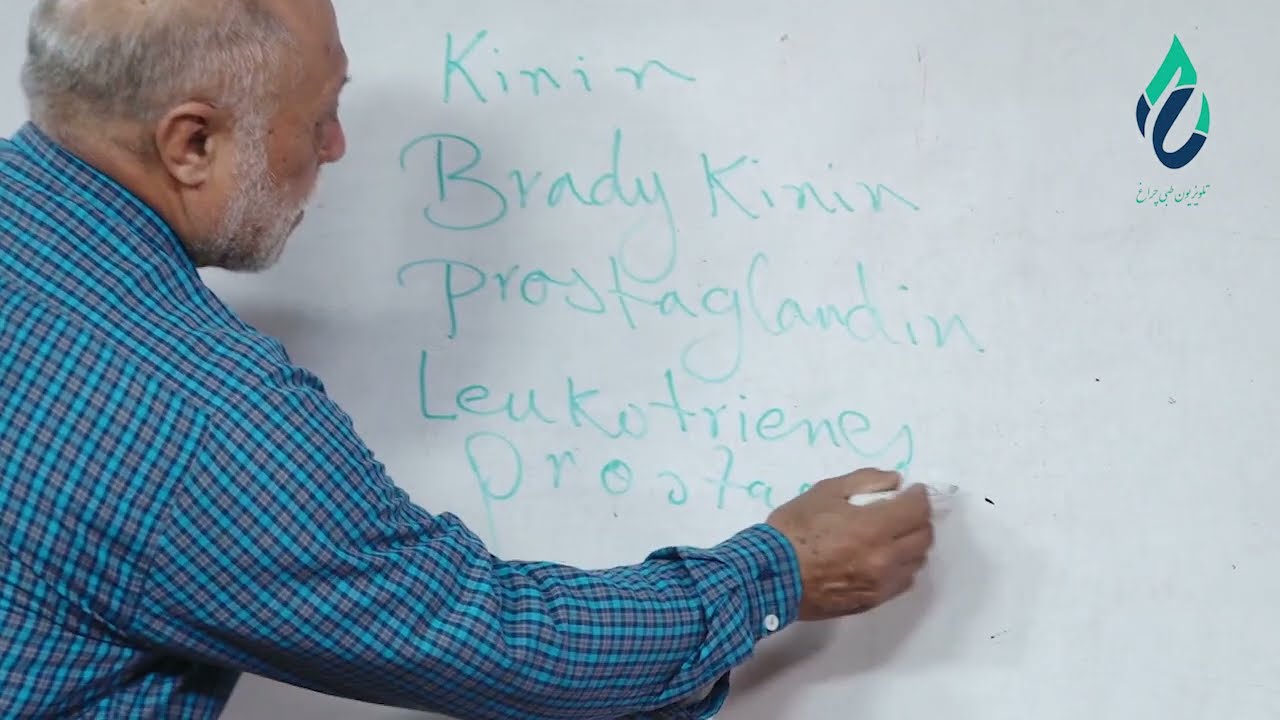 Kinin
Brady Kinin
Prostaglandin
Leukotrienes
Prosta
تلویزیون طبی چراغ